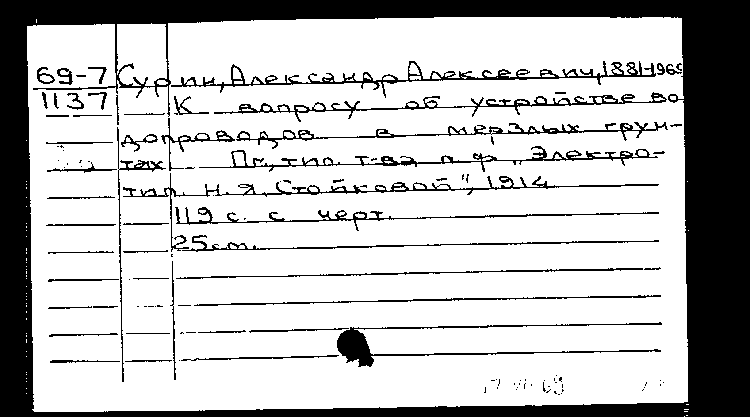 69-7 Сурин, Александр Алексеевич, 1881-1969
1137 К вопросу об устройстве во
допроводов в мерзлых грун-
тах Пг., тип. т-ва п. ф. „Электро-
тип. Н. Я. Стойковой", 1914
119 с. с черт.
25 см.
17 VI 69